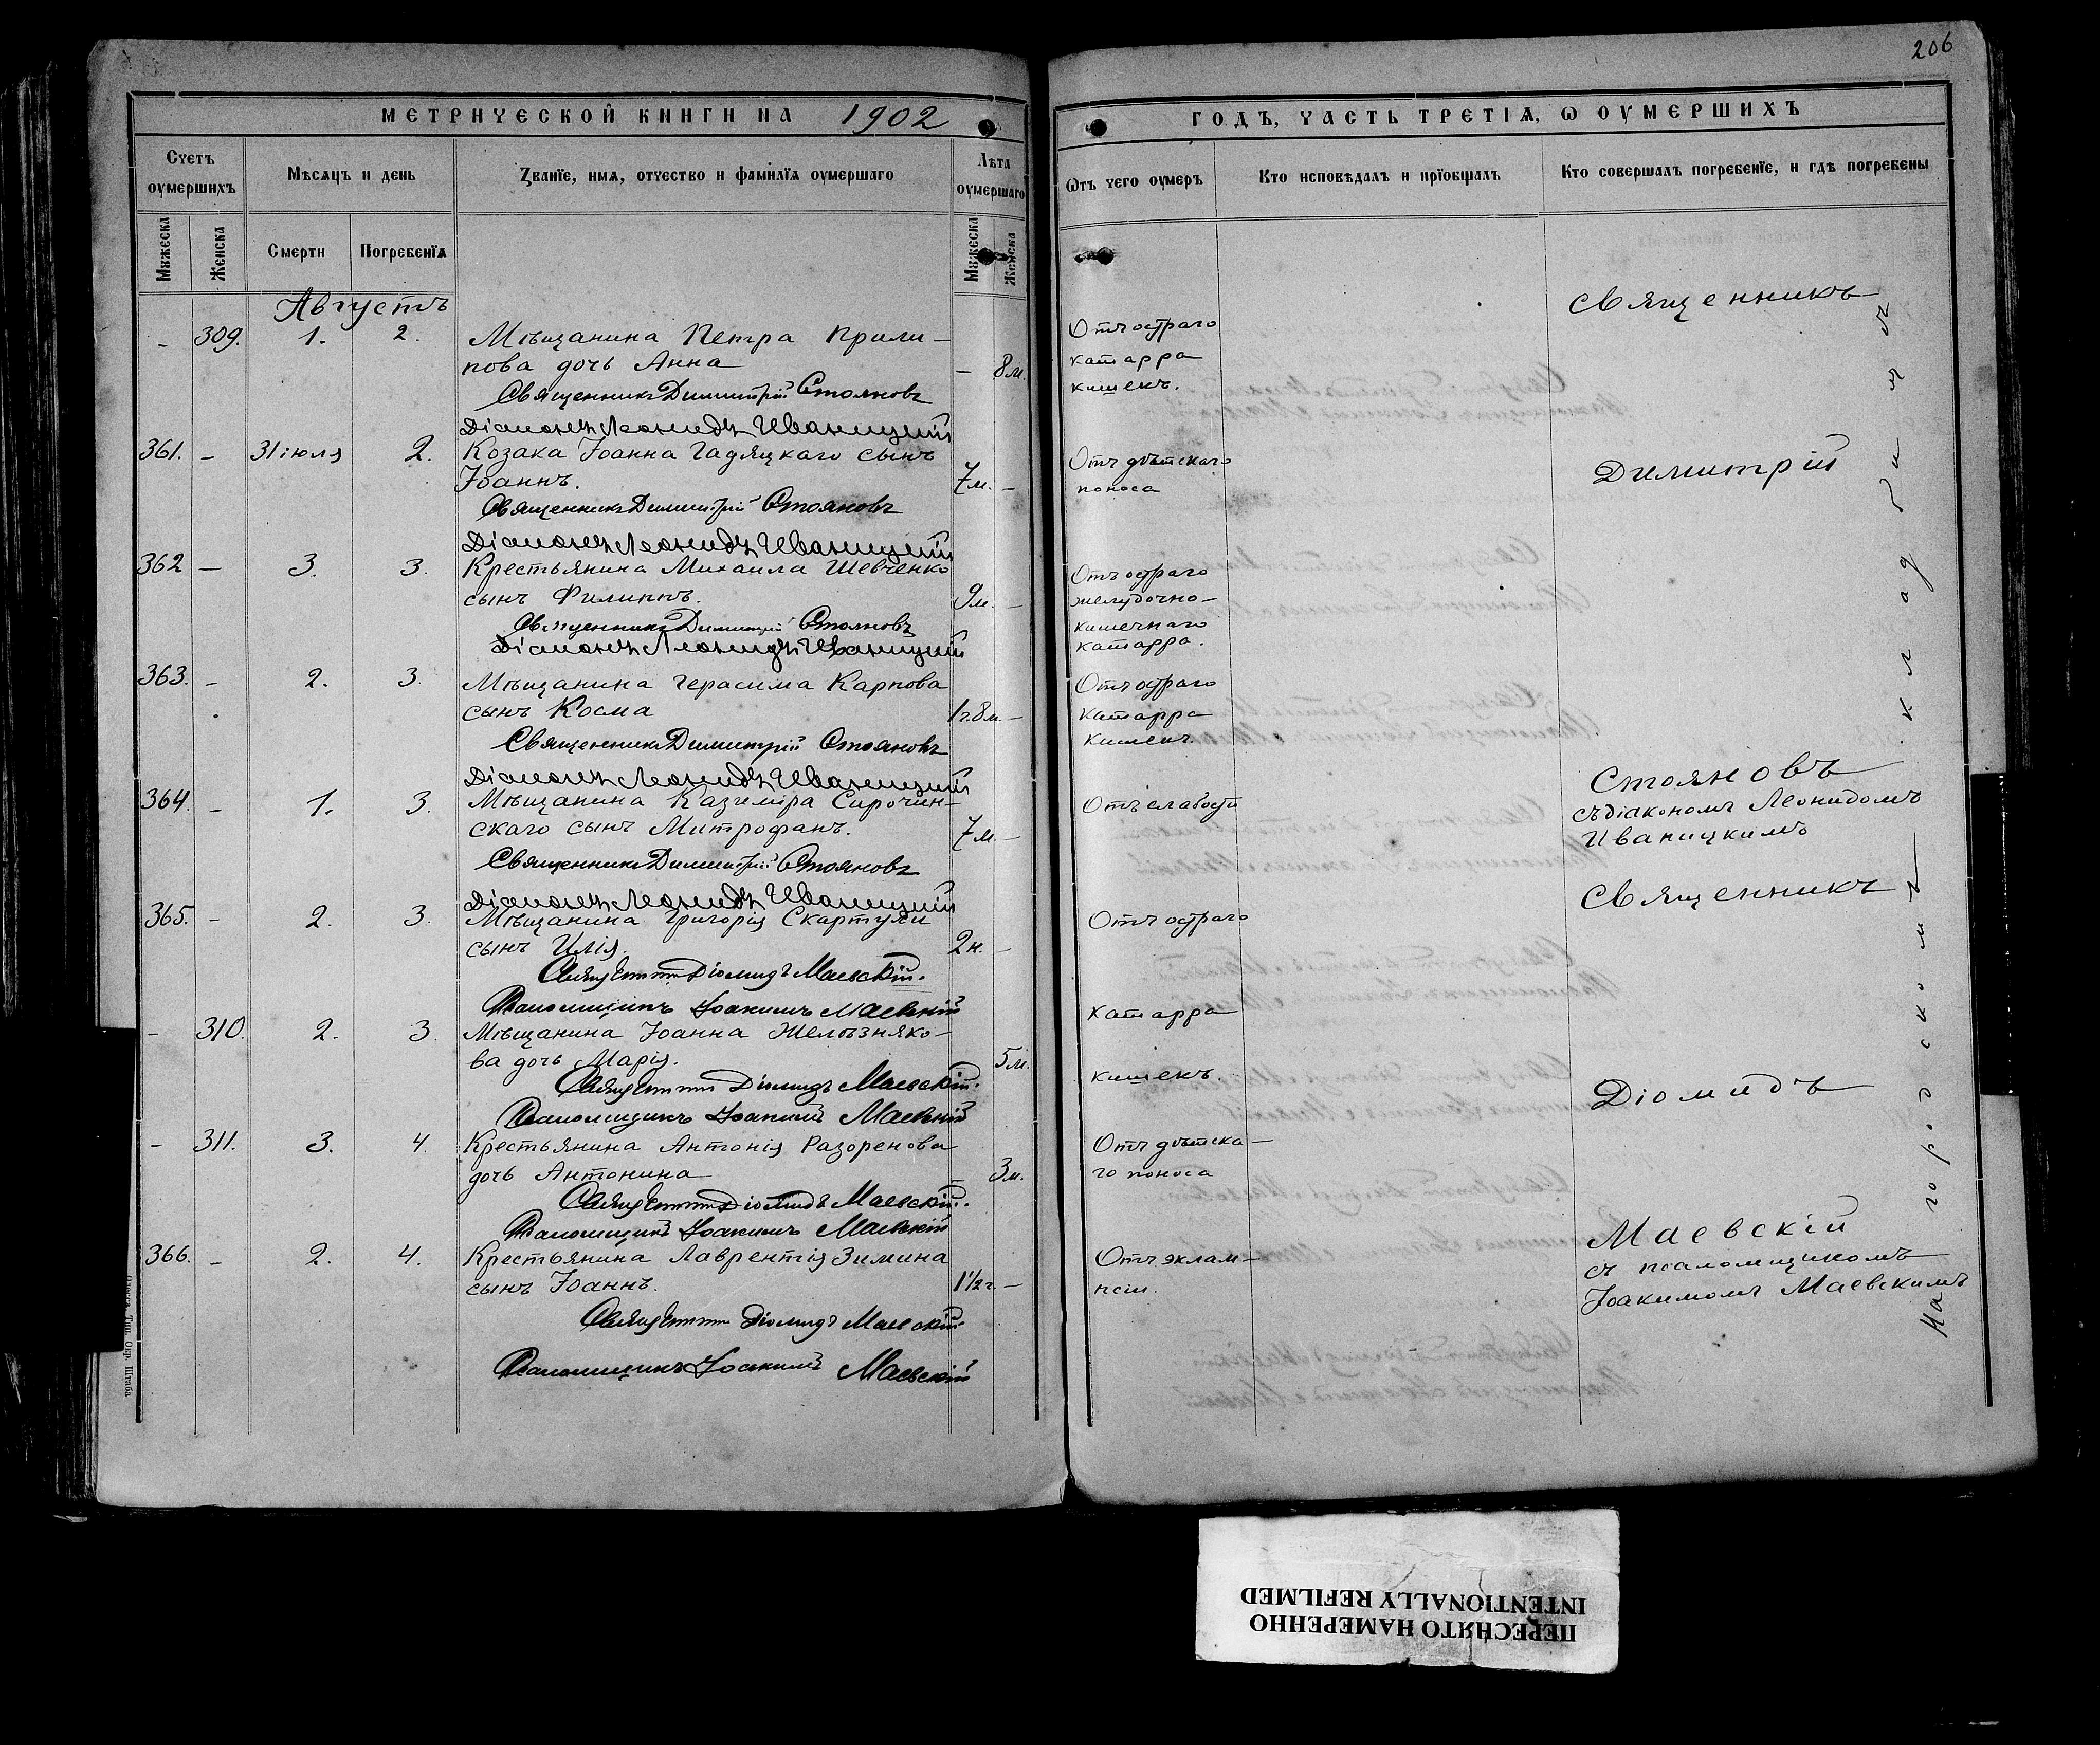 206
МЕТРИЧЕСКОЙ КНИГИ НА 1902
ГОДЪ, ЧАСТЬ ТРЕТІЯ, Ѡ ОУМЕРШИХЪ
Счетъ оумершихъ
Мѣсяцъ и день
Званїе, имя, отчество и фамилїя оумершаго
Лѣта оумершаго
Ѿтъ чего оумеръ
Кто исповѣдалъ и прїобщалъ
Кто совершалъ погребенїе, и гдѣ погребены
Мужеска
Женска
Смерти
Погребенїя
Мужеска
Женска
Августъ
- 309. 1. 2. Мѣщанина Петра Прили-
пова дочь Анна - 8м.
Священникъ Димитрій Стояновъ
Діаконъ Леонидъ Иваницкій
361. - 31 іюля 2. Козака Іоанна Гадяцкаго сынъ
Іоаннъ. 7м. -
Священникъ Димитрій Стояновъ
Діаконъ Леонидъ Иваницкій
362 - 3. 3. Крестьянина Михаила Шевченко
сынъ Филиппъ. 9м. -
Священникъ Димитрій Стояновъ
Діаконъ Леонидъ Иваницкій
363. - 2. 3. Мѣщанина Герасима Карпова
сынъ Косма 1г.8м. -
Священникъ Димитрій Стояновъ
Діаконъ Леонидъ Иваницкій
364. - 1. 3. Мѣщанина Казиміра Сирочин-
скаго сынъ Митрофанъ. 7м. -
Священникъ Димитрій Стояновъ
Діаконъ Леонидъ Иваницкій
365. - 2. 3. Мѣщанина Григорія Скартули
сынъ Илія. 2н. -
Священникъ Діомидъ Маевскій.
Псаломщикъ Іоакимъ Маевскій
- 310. 2. 3. Мѣщанина Іоанна Желѣзняко-
ва дочь Марія. 5м.
Священникъ Діомидъ Маевскій.
Псаломщикъ Іоакимъ Маевскій
- 311. 3. 4. Крестьянина Антонія Разоренова
дочь Антонина - 3м.
Священникъ Діомидъ Маевскій.
Псаломщикъ Іоакимъ Маевскій
366. - 2. 4. Крестьянина Лаврентія Зимина
сынъ Іоаннъ. 1½г. -
Священникъ Діомидъ Маевскій.
Псаломщикъ Іоакимъ Маевскій
Отъ остраго
катарра
кишекъ.
Отъ дѣтскаго
поноса
Отъ остраго
желудочно-
кишечнаго
катарра.
Отъ остраго
катарра
кишекъ.
Отъ слабости
Отъ остраго
катарра
кишекъ.
Отъ дѣтска-
го поноса
Отъ эклам-
псіи.
Священникъ
Димитрій
Стояновъ
съ діакономъ Леонидомъ
Иваницкимъ
Священникъ
Діомидъ
Маевскій
съ псаломщикомъ
Іоакимомъ Маевскимъ
На городскомъ кладбищѣ
Одесса, Тип. Окр. Штаба
ПЕРЕСНЯТО НАМЕРЕННО
INTENTIONALLY REFILMED